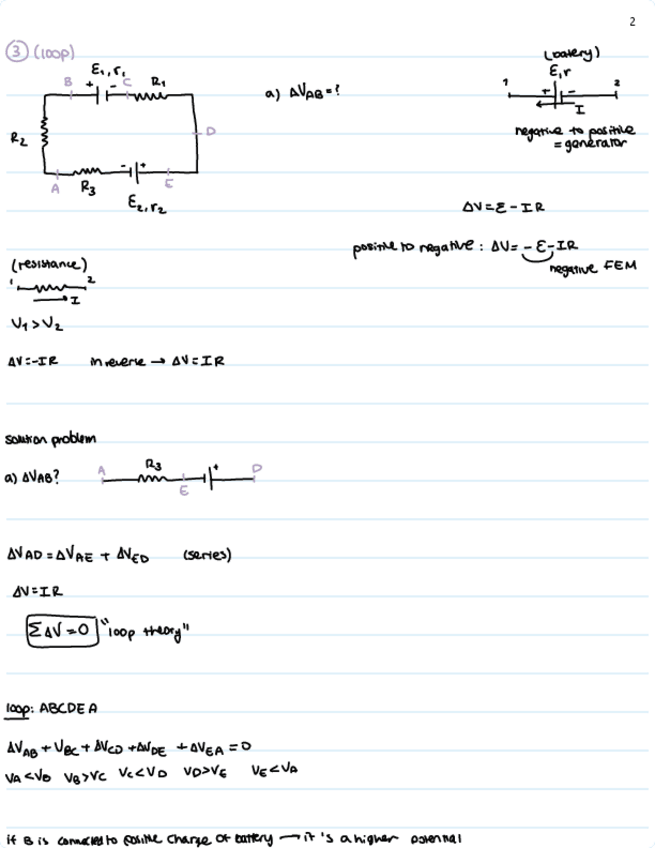 2
③ (loop)
E₁, r₁
B + - C R₁
R₂
D
A R₃ - + E
E₂, r₂
a) ΔV_AB = ?
(battery)
E, r
1 + - 2
I
negative to positive
= generator
ΔV = E - IR
positive to negative : ΔV = -E - IR
negative FEM
(resistance)
1 2
I
V₁ > V₂
ΔV = -IR in reverse → ΔV = IR
solution problem
a) ΔV_AB? A R₃ E + D
ΔV_AD = ΔV_AE + ΔV_ED (series)
ΔV = IR
ΣΔV = 0 "loop theory"
loop: ABCDEA
ΔV_AB + V_BC + ΔV_CD + ΔV_DE + ΔV_EA = 0
V_A < V_B V_B > V_C V_C < V_D V_D > V_E V_E < V_A
if B is connected to positive charge of battery → it's a higher potential